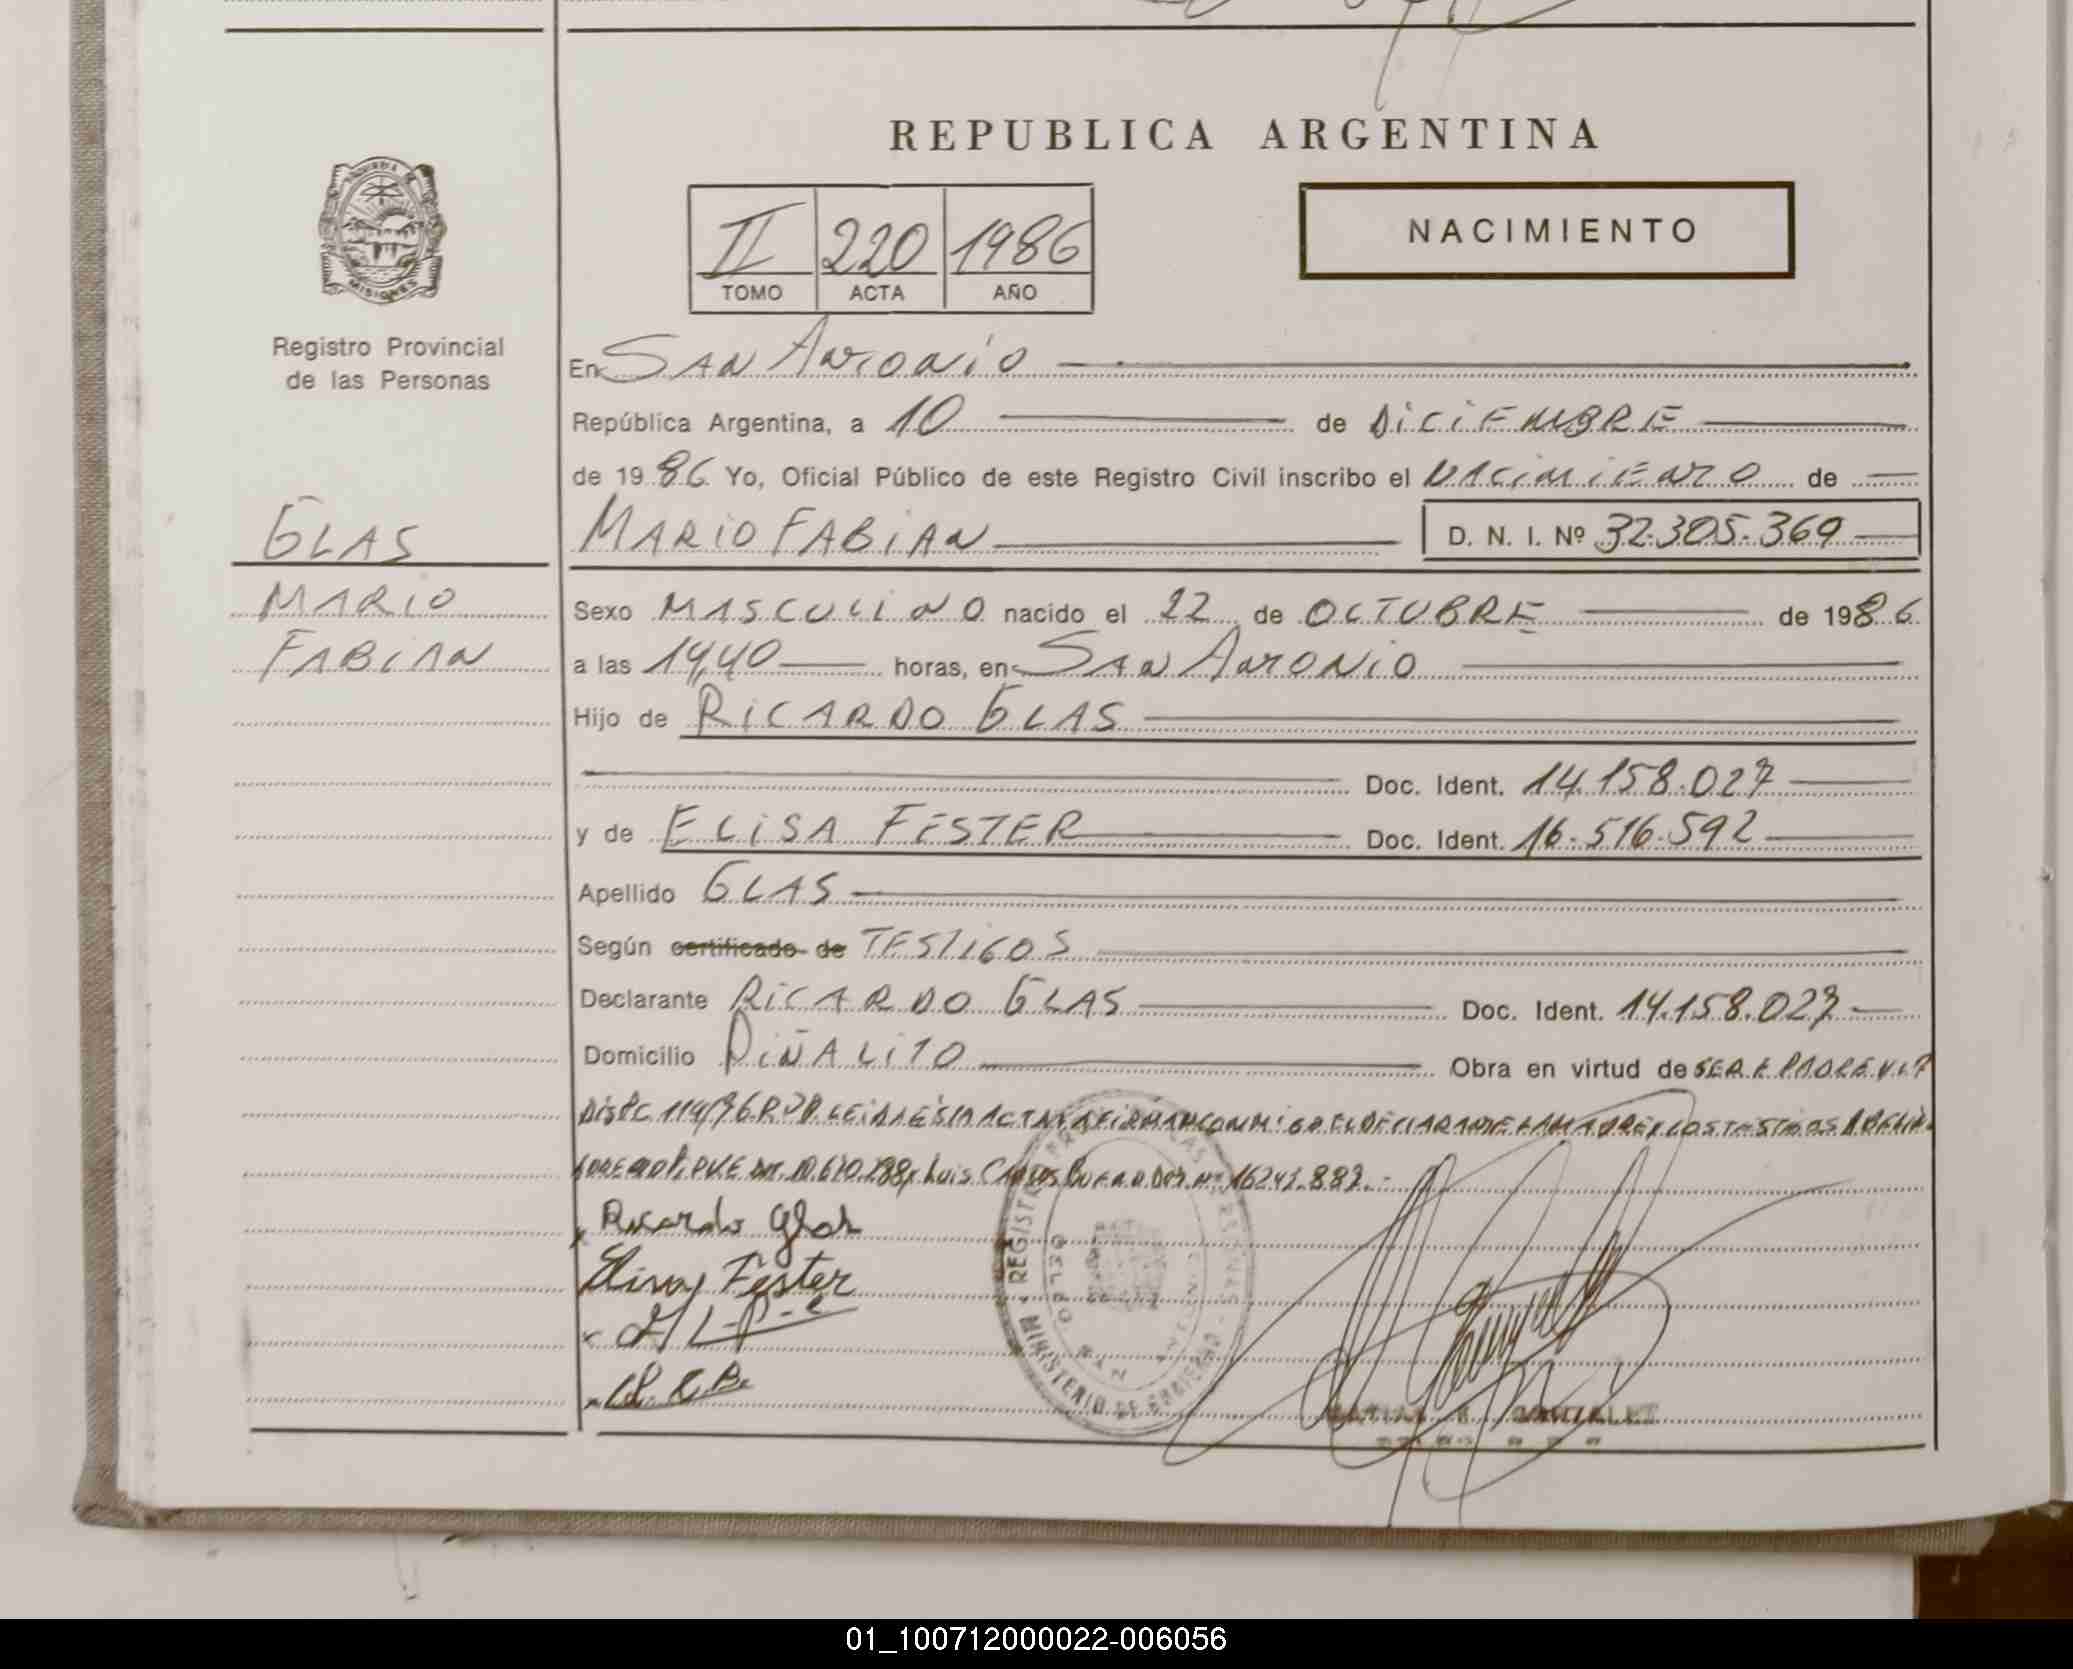 REPUBLICA ARGENTINA
II 220 1986
TOMO ACTA AÑO
NACIMIENTO
MISIONES
Registro Provincial
de las Personas
En SAN ANTONIO
República Argentina, a 10 de DICIEMBRE
de 1986 Yo, Oficial Público de este Registro Civil inscribo el NACIMIENTO de
GLAS
MARIO
FABIAN
MARIO FABIAN D. N. I. Nº 32.305.369
Sexo MASCULINO nacido el 22 de OCTUBRE de 1986
a las 14,40 horas, en SAN ANTONIO
Hijo de RICARDO GLAS
Doc. Ident. 14.158.027
y de ELISA FESTER Doc. Ident. 16.516.592
Apellido GLAS
Según certificado de TESTIGOS
Declarante RICARDO GLAS Doc. Ident. 14.158.027
Domicilio PIÑALITO Obra en virtud de SER EL PADRE
LEIDA ESTA ACTA LA FIRMAN CONMIGO EL DECLARANTE LA MADRE Y LOS TESTIGOS
10.610.288 y LUIS CARLOS Nº 16243.883.-
Ricardo Glas
Elisa Fester
REGISTRO
MINISTERIO DE GOBIERNO
01_100712000022-006056